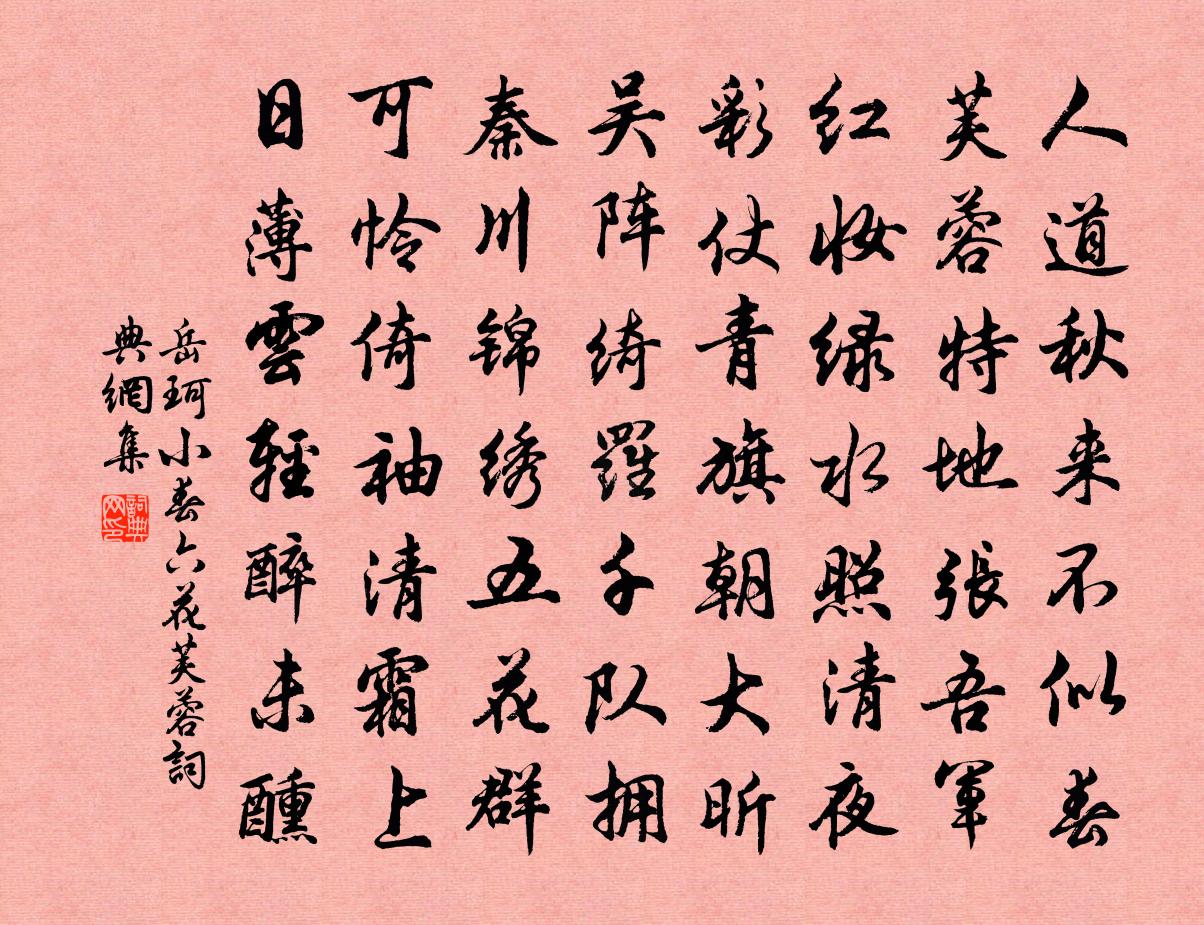 人道秋来不似春
芙蓉特地張吾軍
红妝绿水照清夜
彩仗青旗朝大昕
吴阵绮羅千队拥
秦川锦绣五花群
可怜倚袖清霜上
日薄雲輕醉未醺
岳珂小春六花芙蓉詞
典網集
詞典
网印